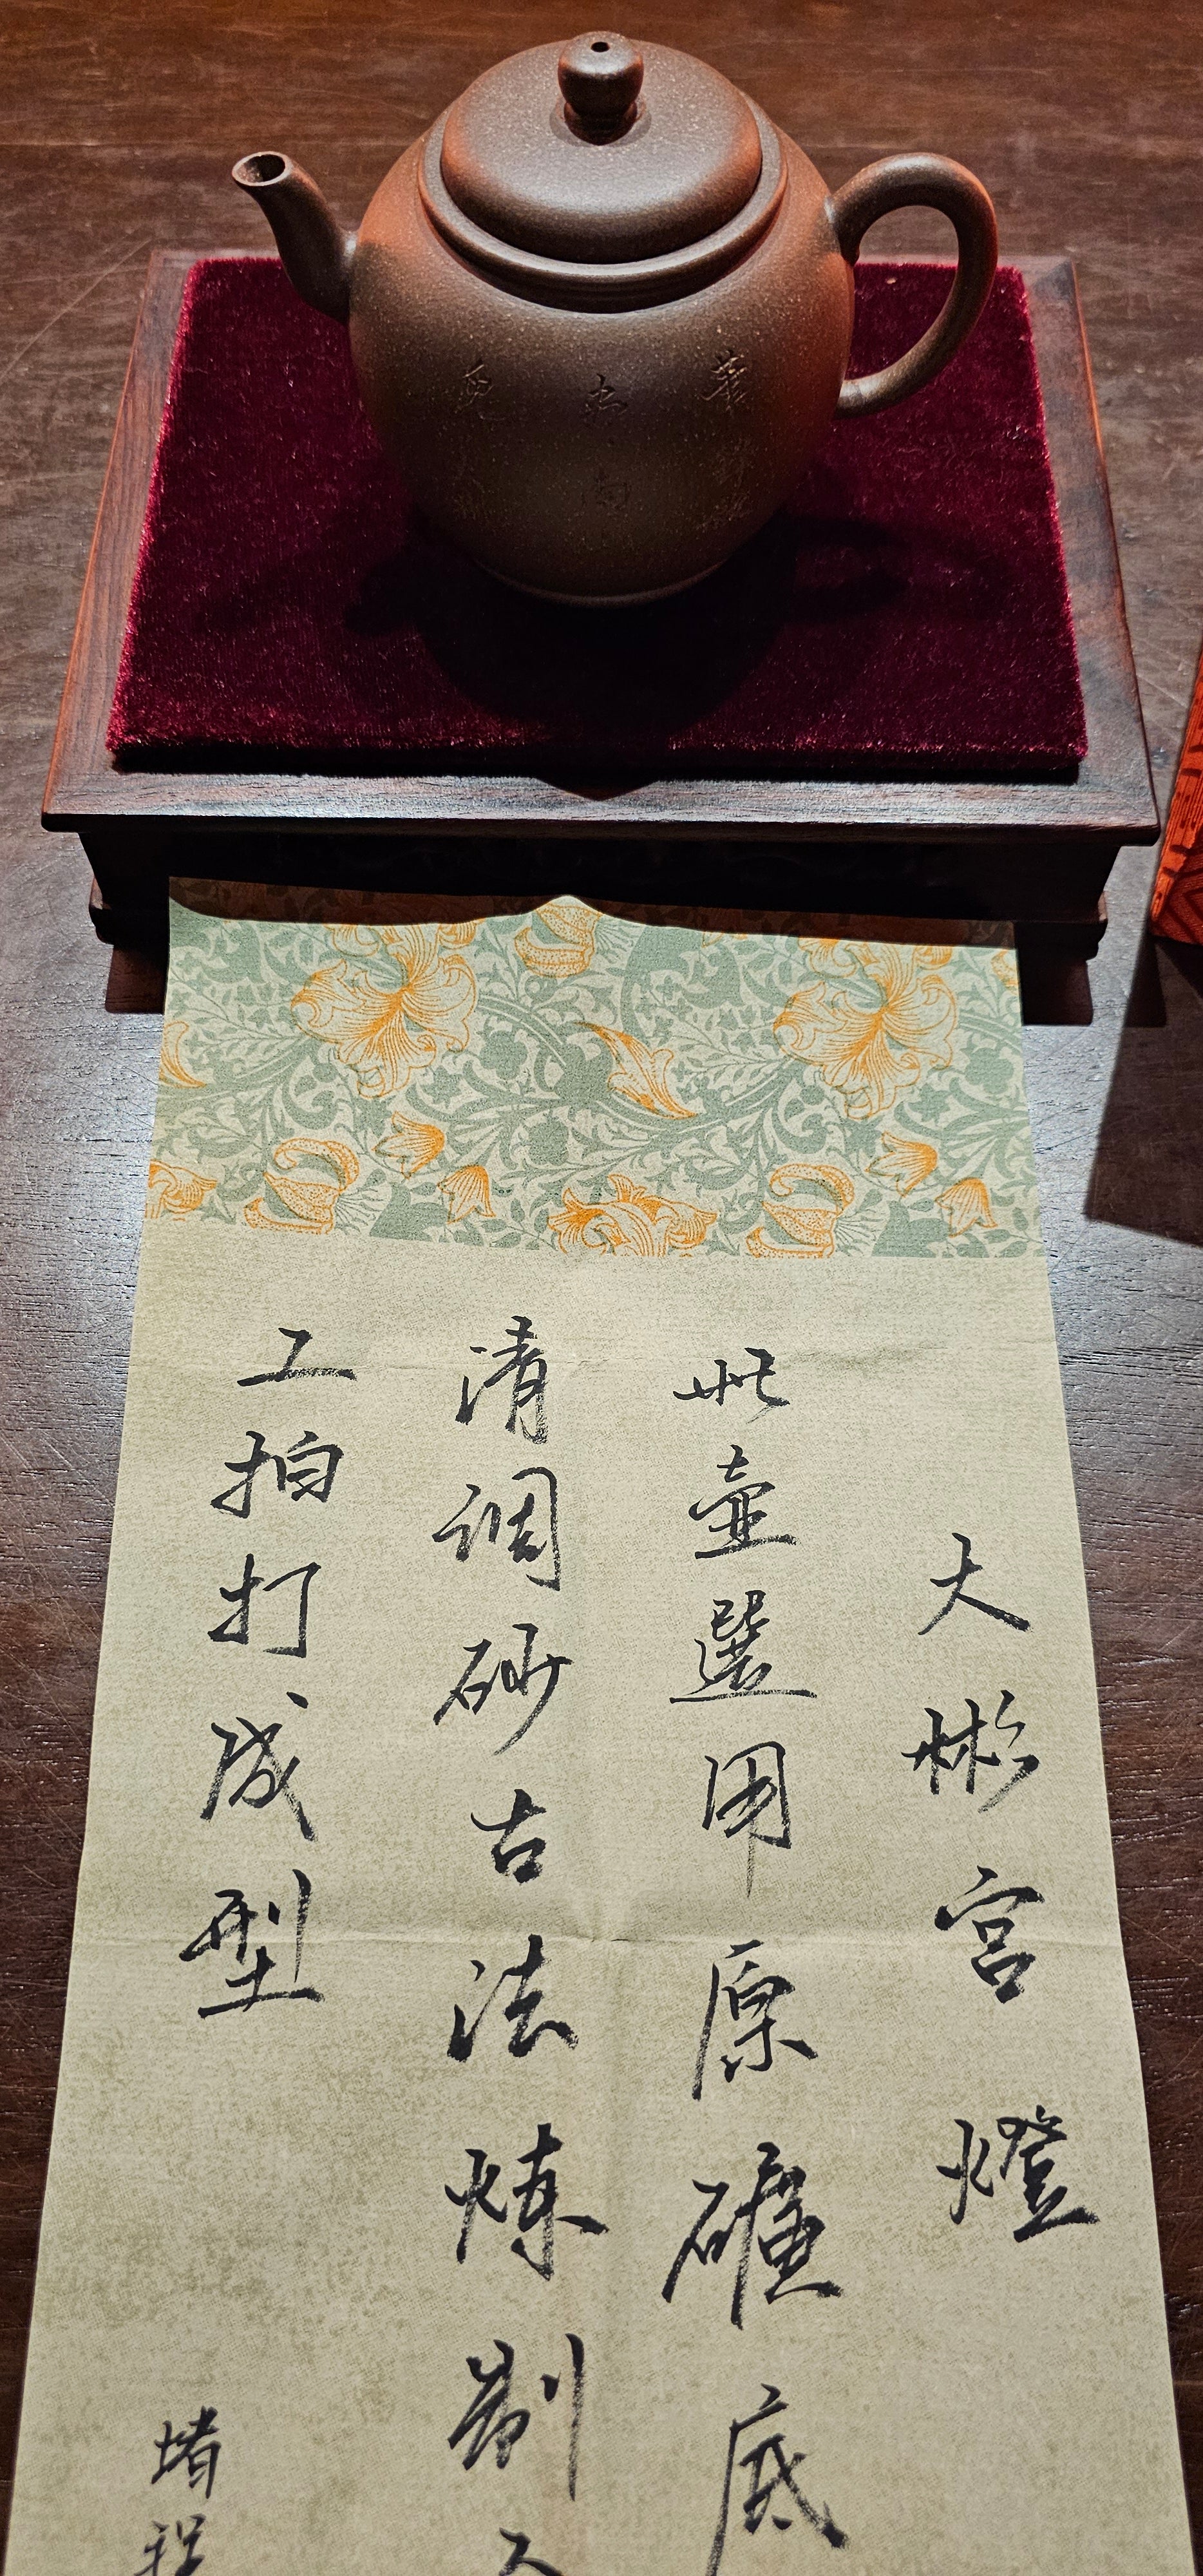 大彬宮燈
此壺選用原礦底
清调砂古法炼制
工拍打成型
堵